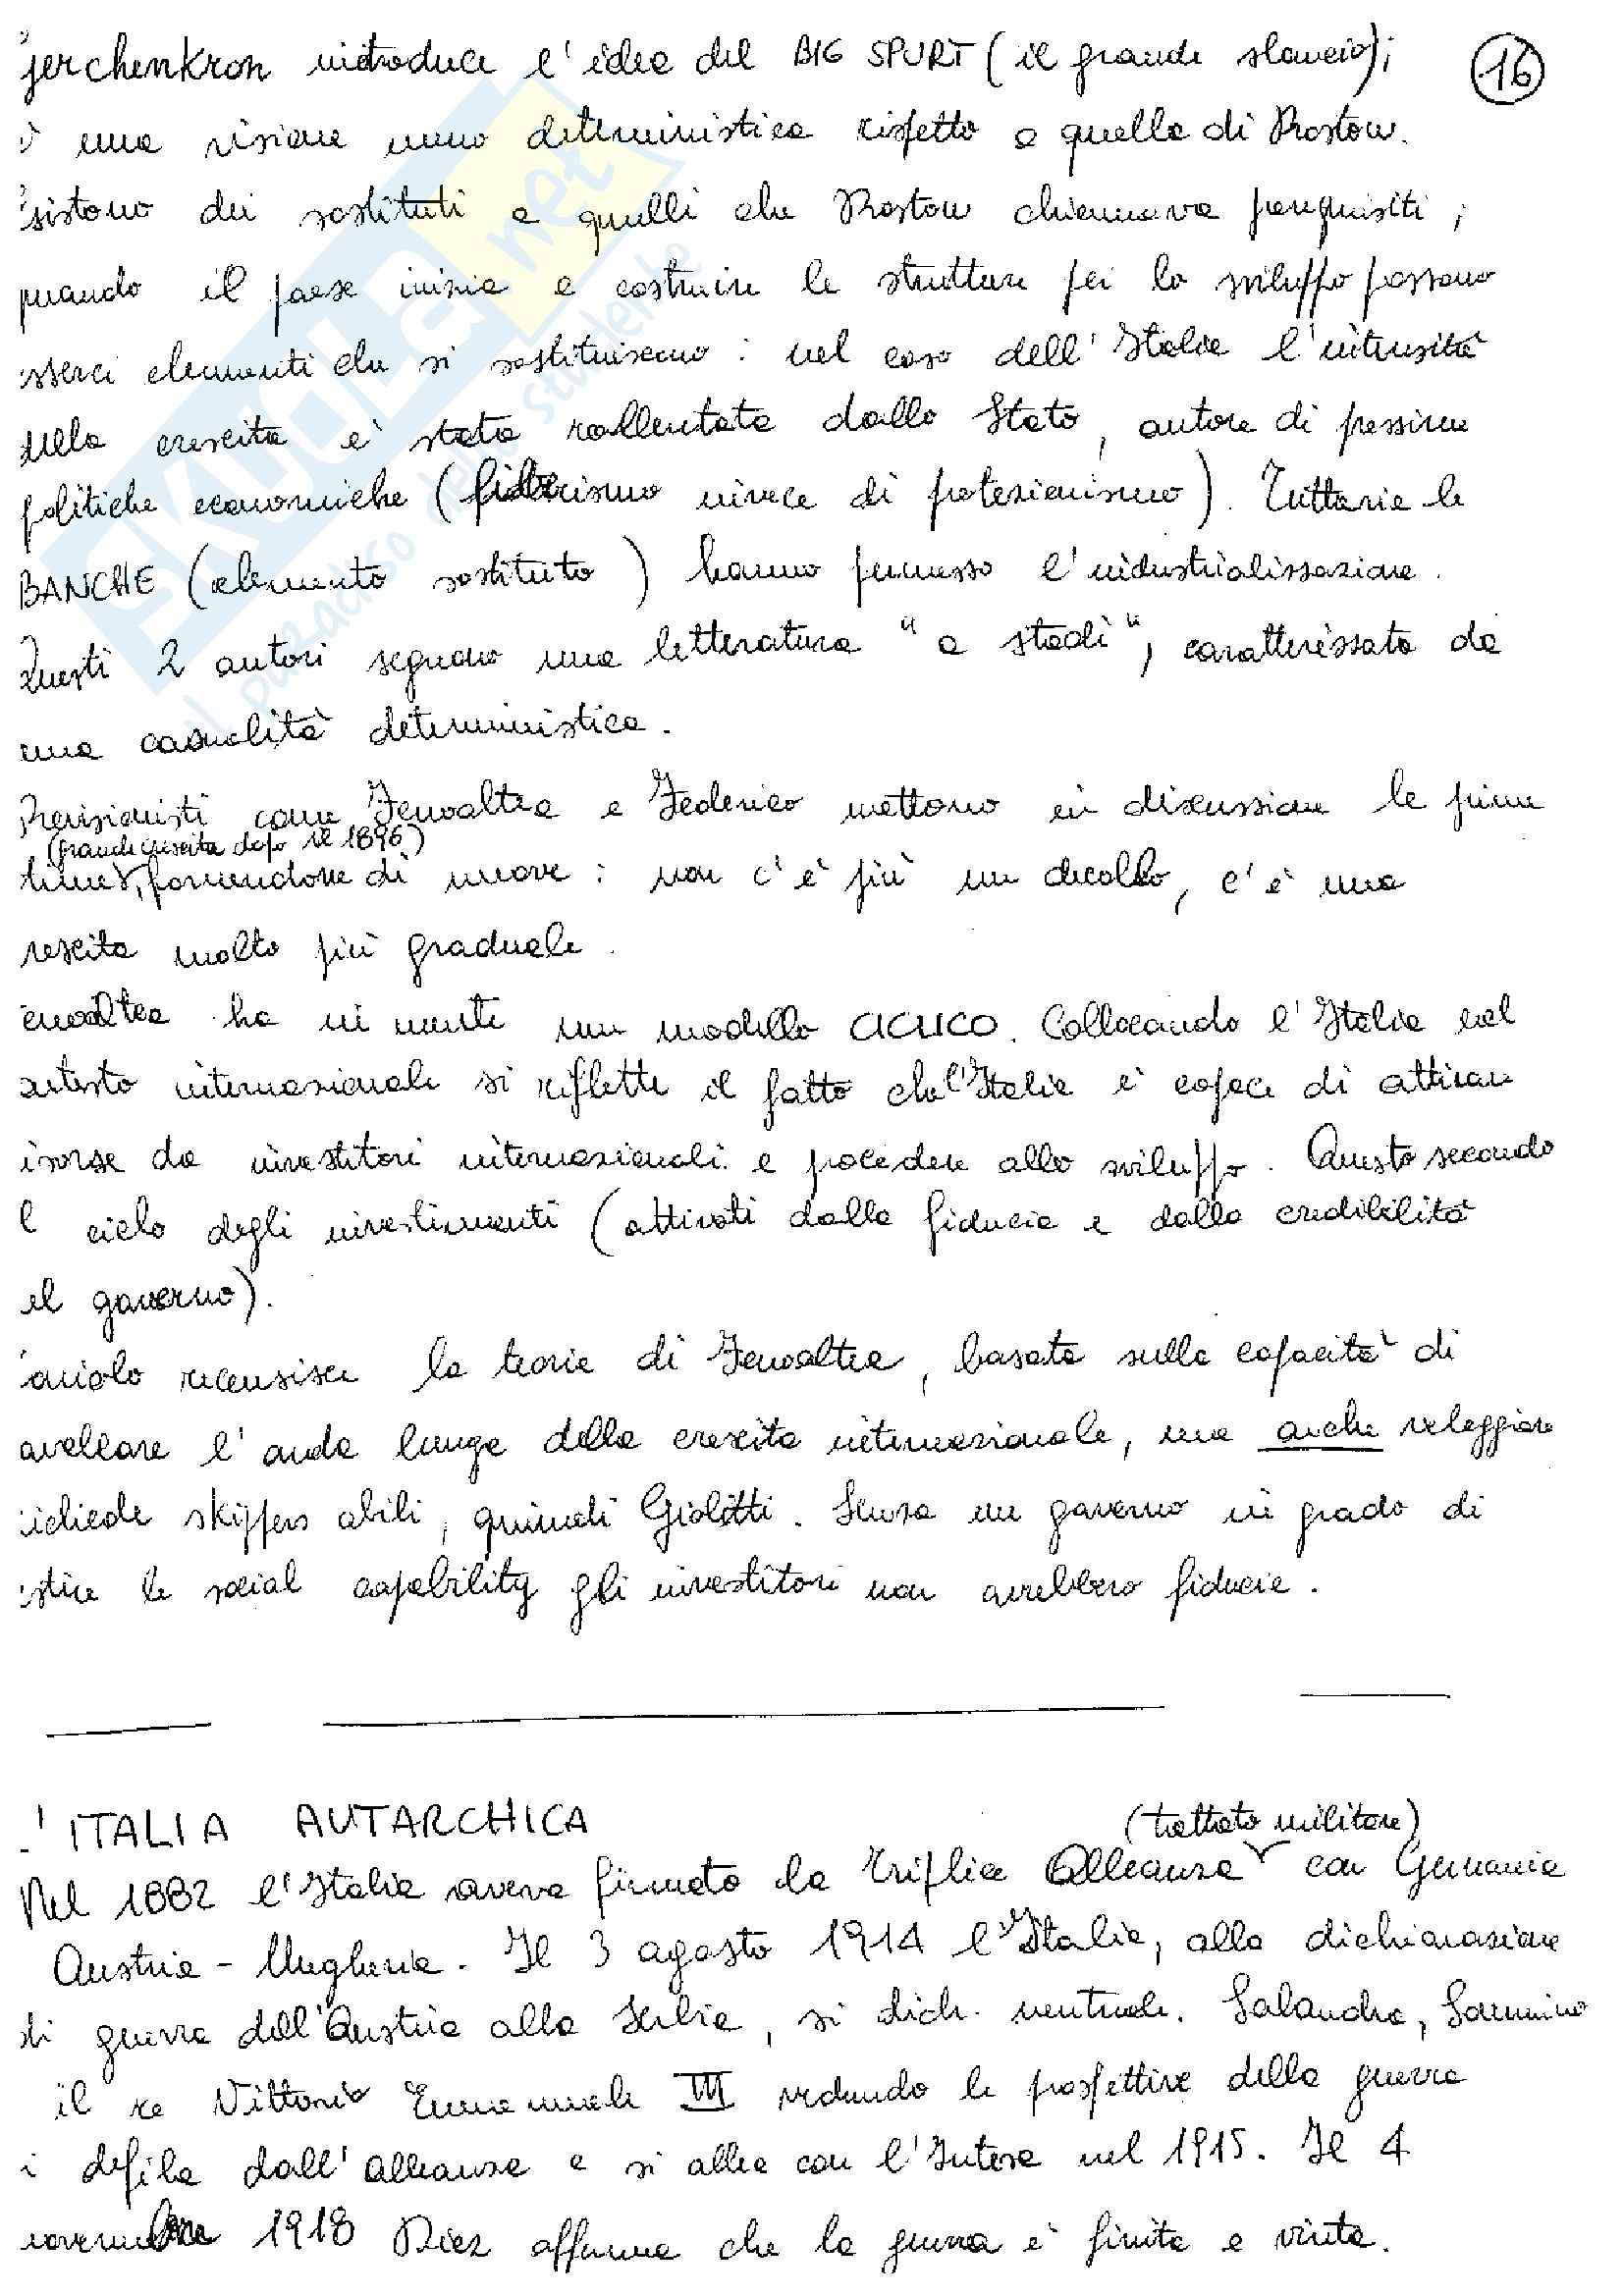 Gerchenkron introduce l'idea del BIG SPURT (il grande slancio); 16
è una visione meno deterministica rispetto a quella di Rostow.
Esistono dei sostituti a quelli che Rostow chiamava prerequisiti;
quando il paese inizia a costruire le strutture per lo sviluppo possono
esserci elementi che si sostituiscono: nel caso dell'Italia l'intensità
della crescita è stata rallentata dallo Stato, autore di pessime
politiche economiche (liberismo invece di protezionismo). Tuttavia le
BANCHE (elemento sostituto) hanno permesso l'industrializzazione.
Questi 2 autori segnano una letteratura "a stadi", caratterizzata da
una casualità deterministica.
Revisionisti come Fenoaltea e Federico mettono in discussione le prime
(grande crescita dopo il 1896)
stime, fornendone di nuove: non c'è più un decollo, c'è una
crescita molto più graduale.
Fenoaltea ha in mente un modello CICLICO. Collocando l'Italia nel
contesto internazionale si riflette il fatto che l'Italia è capace di attirare
risorse da investitori internazionali e procedere allo sviluppo. Questo secondo
il ciclo degli investimenti (attivati dalla fiducia e dalla credibilità
del governo).
recensisce la teoria di Fenoaltea, basata sulla capacità di
cavalcare l'onda lunga della crescita internazionale, ma anche veleggiare
richiede skippers abili, quindi Giolitti. Senza un governo in grado di
gestire la social capability gli investitori non avrebbero fiducia.
L'ITALIA AUTARCHICA
(trattato militare)
Nel 1882 l'Italia aveva firmato la Triplice Alleanza con Germania
Austria-Ungheria. Il 3 agosto 1914 l'Italia, alla dichiarazione
di guerra dell'Austria alla Serbia, si dich. neutrale. Salandra, Sonnino
il re Vittorio Emanuele III vedendo le prospettive della guerra
si defila dall'alleanza e si allea con l'Intesa nel 1915. Il 4
novembre 1918 Diaz afferma che la guerra è finita e vinta.
SKUOLA.net
il paradiso dello studente